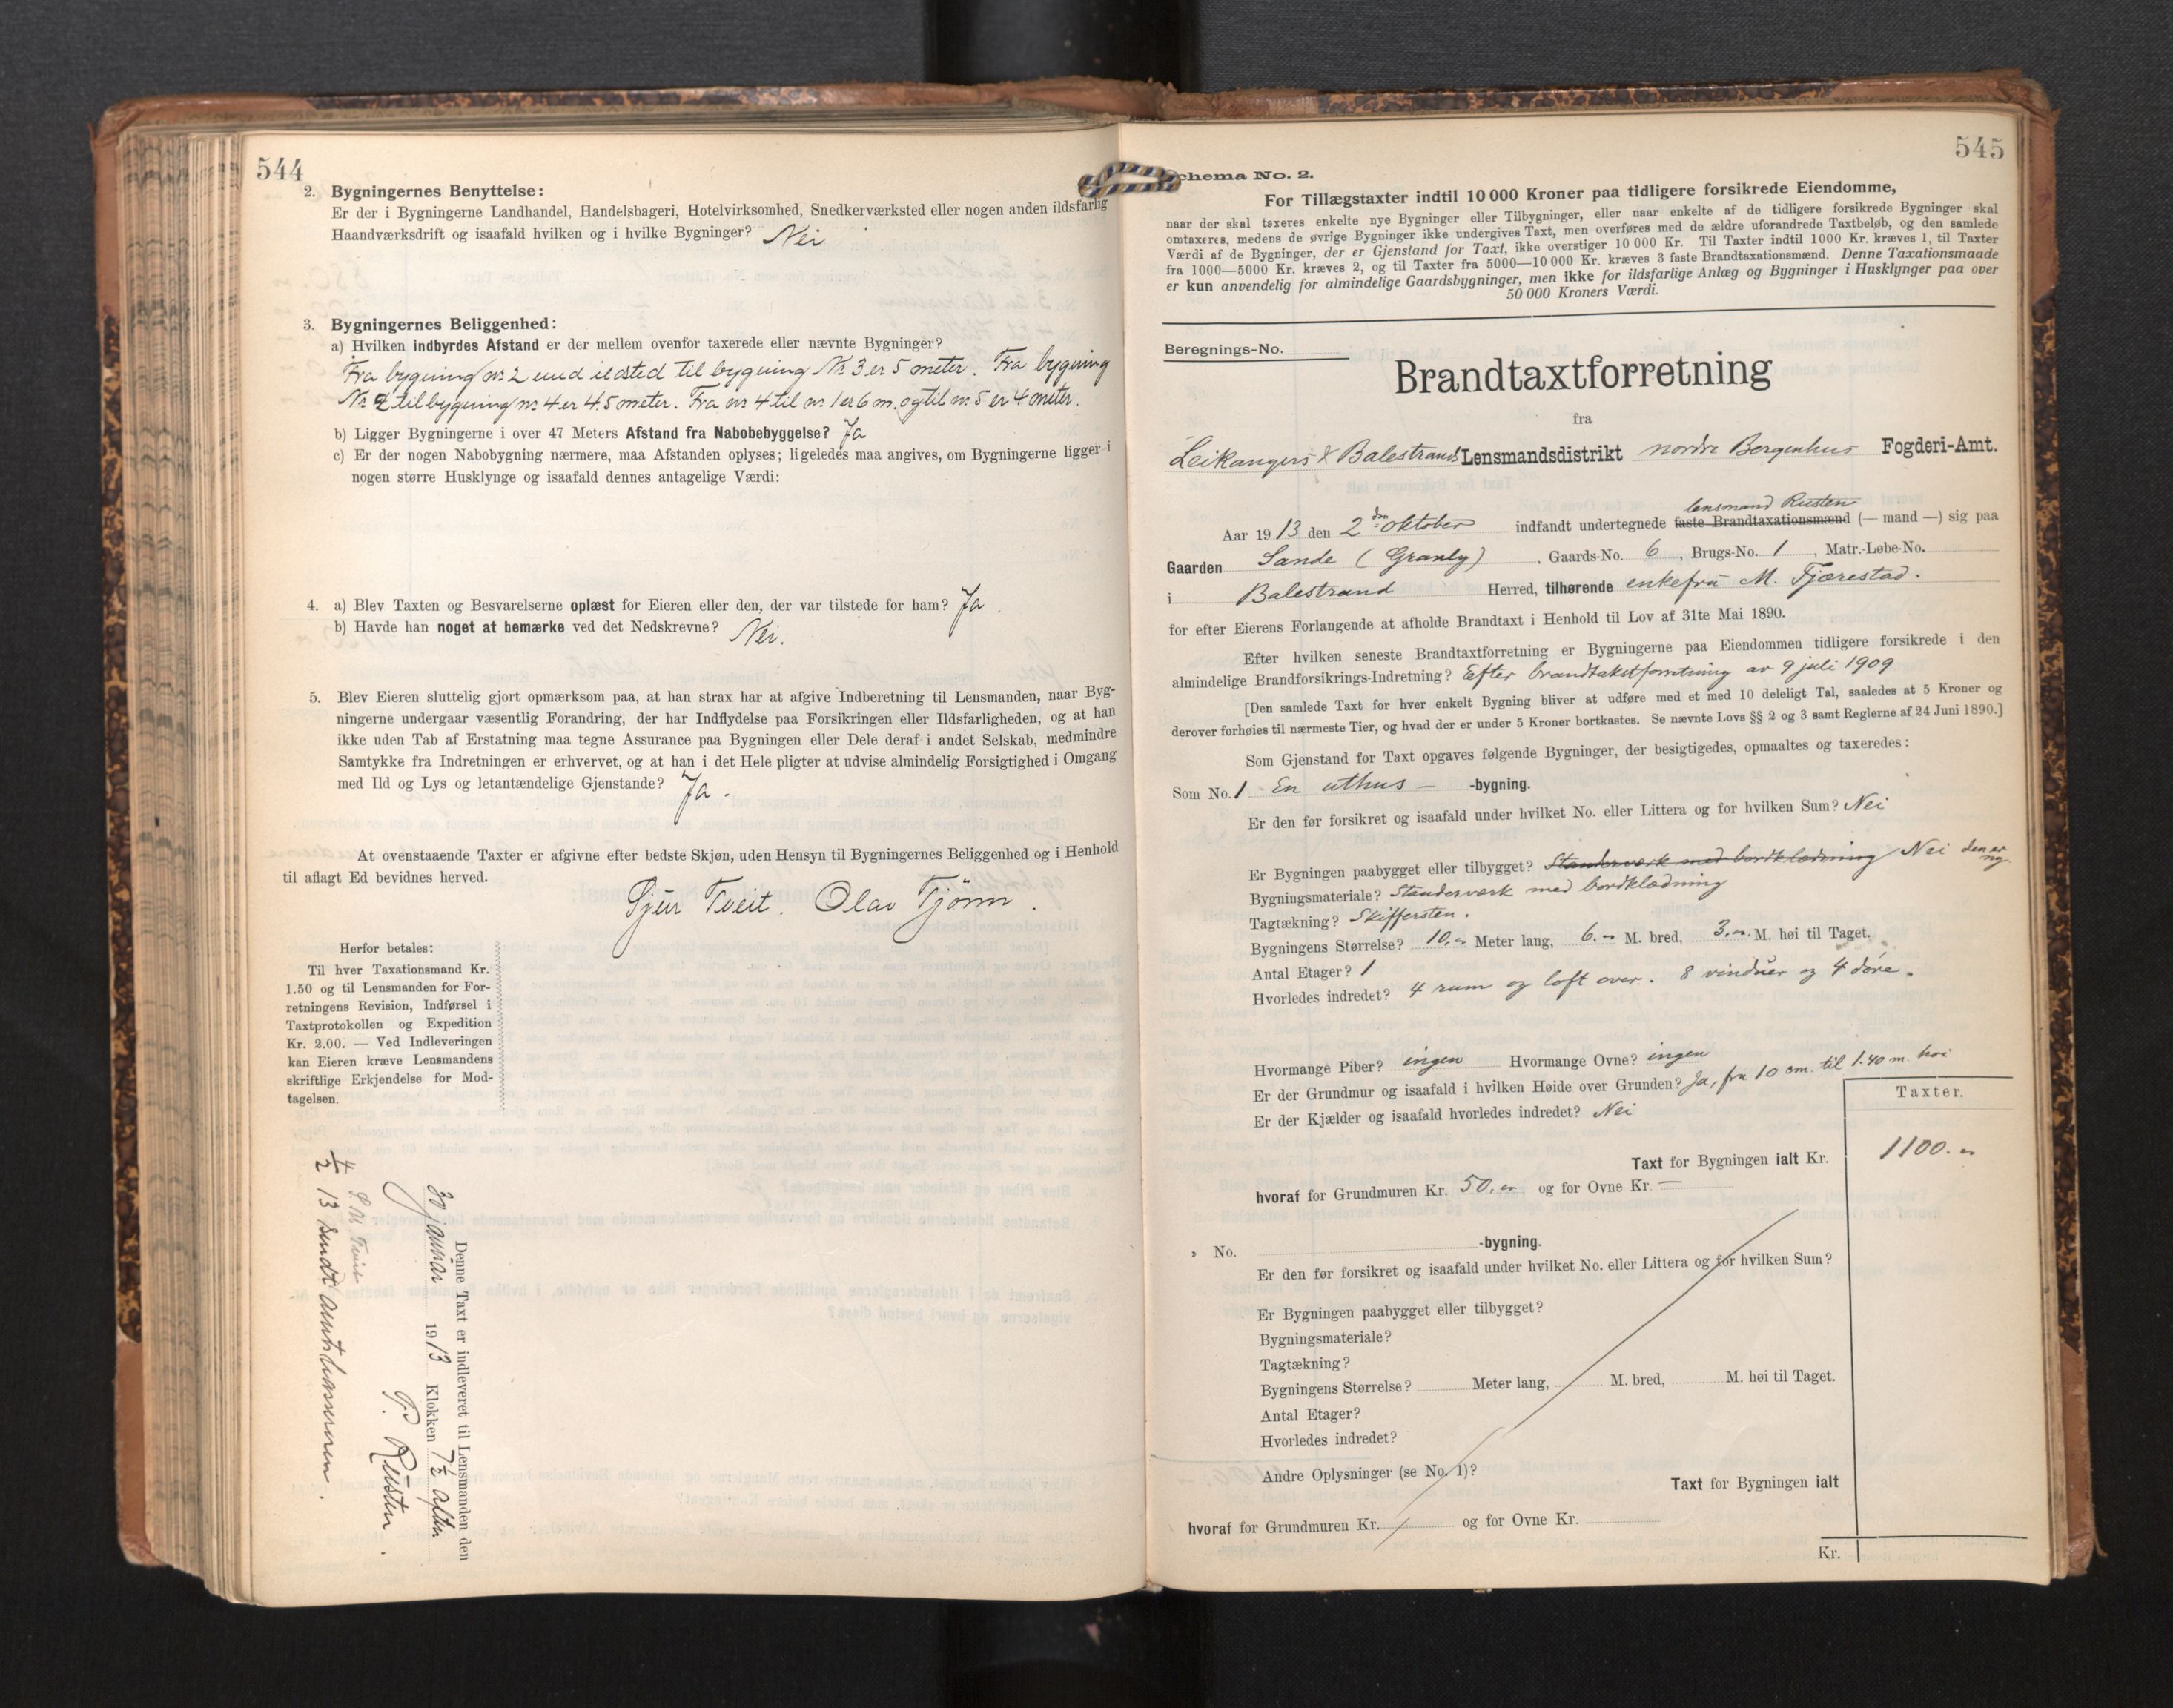 544
2. Bygningernes Benyttelse:
Er der i Bygningerne Landhandel, Handelsbageri, Hotelvirksomhed, Snedkerværksted eller nogen anden ildsfarlig
Haandværksdrift og isaafald hvilken og i hvilke Bygninger? Nei
3. Bygningernes Beliggenhed:
a) Hvilken indbyrdes Afstand er der mellem ovenfor taxerede eller nævnte Bygninger?
Fra bygning nr 2 med ildsted til bygning Nr 3 er 5 meter. Fra bygning
Nr 2 til bygning nr 4 er 4.5 meter. Fra nr 4 til nr 1 er 6 m. og til nr 5 er 4 meter.
b) Ligger Bygningerne i over 47 Meters Afstand fra Nabobebyggelse? Ja
c) Er der nogen Nabobygning nærmere, maa Afstanden oplyses; ligeledes maa angives, om Bygningerne ligger i
nogen større Husklynge og isaafald dennes antagelige Værdi:
4. a) Blev Taxten og Besvarelserne oplæst for Eieren eller den, der var tilstede for ham? Ja.
b) Havde han noget at bemærke ved det Nedskrevne? Nei.
5. Blev Eieren sluttelig gjort opmærksom paa, at han strax har at afgive Indberetning til Lensmanden, naar Byg-
ningerne undergaar væsentlig Forandring, der har Indflydelse paa Forsikringen eller Ildsfarligheden, og at han
ikke uden Tab af Erstatning maa tegne Assurance paa Bygningen eller Dele deraf i andet Selskab, medmindre
Samtykke fra Indretningen er erhvervet, og at han i det Hele pligter at udvise almindelig Forsigtighed i Omgang
med Ild og Lys og letantændelige Gjenstande? Ja.
At ovenstaaende Taxter er afgivne efter bedste Skjøn, uden Hensyn til Bygningernes Beliggenhed og i Henhold
til aflagt Ed bevidnes herved.
Sjur Tveit. Olav Tjønn.
Herfor betales:
Til hver Taxationsmand Kr.
1.50 og til Lensmanden for For-
retningens Revision, Indførsel i
Taxtprotokollen og Expedition
Kr. 2.00. — Ved Indleveringen
kan Eieren kræve Lensmandens
skriftlige Erkjendelse for Mod-
tagelsen.
Denne Taxt er indleveret til Lensmanden den
30 januar 1913 Klokken 7½ aften
P. Rusten.
4/2 13 sendt amtskassereren.
545
Schema No. 2.
For Tillægstaxter indtil 10 000 Kroner paa tidligere forsikrede Eiendomme,
naar der skal taxeres enkelte nye Bygninger eller Tilbygninger, eller naar enkelte af de tidligere forsikrede Bygninger skal
omtaxeres, medens de øvrige Bygninger ikke undergives Taxt, men overføres med de ældre uforandrede Taxtbeløb, og den samlede
Værdi af de Bygninger, der er Gjenstand for Taxt, ikke overstiger 10 000 Kr. Til Taxter indtil 1000 Kr. kræves 1, til Taxter
fra 1000—5000 Kr. kræves 2, og til Taxter fra 5000—10 000 Kr. kræves 3 faste Brandtaxationsmænd. Denne Taxationsmaade
er kun anvendelig for almindelige Gaardsbygninger, men ikke for ildsfarlige Anlæg og Bygninger i Husklynger paa over
50 000 Kroners Værdi.
Beregnings-No.
Brandtaxtforretning
fra
Leikangers & Balestrands Lensmandsdistrikt nordre Bergenhus Fogderi-Amt.
lensmand Rusten
Aar 1913 den 2den oktober indfandt undertegnede faste Brandtaxationsmænd (— mand —) sig paa
Gaarden Sande (Granly). Gaards-No. 6, Brugs-No. 1, Matr.-Løbe-No.
i Balestrand Herred, tilhørende enkefru M. Tjærestad.
for efter Eierens Forlangende at afholde Brandtaxt i Henhold til Lov af 31te Mai 1890.
Efter hvilken seneste Brandtaxtforretning er Bygningerne paa Eiendommen tidligere forsikrede i den
almindelige Brandforsikrings-Indretning? Efter brandtakstforretning av 9 juli 1909
[Den samlede Taxt for hver enkelt Bygning bliver at udføre med et med 10 deleligt Tal, saaledes at 5 Kroner og
derover forhøies til nærmeste Tier, og hvad der er under 5 Kroner bortkastes. Se nævnte Lovs §§ 2 og 3 samt Reglerne af 24 Juni 1890.]
Som Gjenstand for Taxt opgaves følgende Bygninger, der besigtigedes, opmaaltes og taxeredes:
Som No. 1 En uthus — -bygning.
Er den før forsikret og isaafald under hvilket No. eller Littera og for hvilken Sum? Nei
Er Bygningen paabygget eller tilbygget? Standerværk med bordklædning Nei den er ny.
Bygningsmateriale? Standerværk med bordklædning
Tagtækning? Skiffersten.
Bygningens Størrelse? 10.- Meter lang, 6.- M. bred, 3.- M. høi til Taget.
Antal Etager? 1
Hvorledes indredet? 4 rum og loft over. 8 vinduer og 4 døre.
Hvormange Piber? ingen Hvormange Ovne? ingen
Er der Grundmur og isaafald i hvilken Høide over Grunden? Ja, fra 10 cm. til 1.40 m. høi
Er der Kjælder og isaafald hvorledes indredet? Nei
Taxter.
Taxt for Bygningen ialt Kr. 1100.-
hvoraf for Grundmuren Kr. 50.- og for Ovne Kr —
" No. -bygning.
Er den før forsikret og isaafald under hvilket No. eller Littera og for hvilken Sum?
Er Bygningen paabygget eller tilbygget?
Bygningsmateriale?
Tagtækning?
Bygningens Størrelse? Meter lang, M. bred, M. høi til Taget.
Antal Etager?
Hvorledes indredet?
Andre Oplysninger (se No. 1)?
Taxt for Bygningen ialt
hvoraf for Grundmuren Kr. og for Ovne Kr.
Kr.